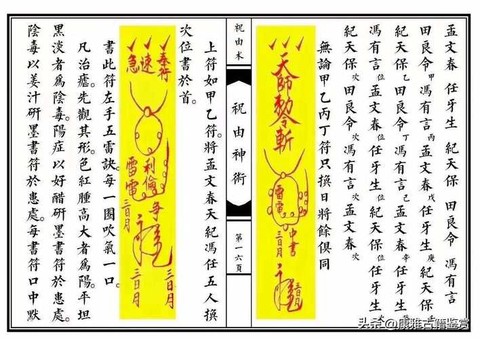 孟文春 任牙生 紀天保 田良令 馮有言
田良令甲 馮有言 孟文春丙 任牙生戊 紀天保庚
紀天保乙 田良令丁 馮有言己 孟文春辛 任牙生
馮有言位 孟文春位 任牙生位
紀天保次 田良令次 馮有言次 孟文春次
無論甲乙丙丁符只撰日將餘俱同
天師勅令斬
雷雷
三日月
祝由术
祝由神術
第一六頁
上符如甲乙符將孟文春天紀馮任五人撰
次位書於首。
奉符
速
急
雷雷
三日月
三日月
書此符左手五雷訣每一圈吹氣一口。
凡治瘡先觀其形。色紅腫高大者為陽。平坦
黑淡者為陰毒。陽症以好醋研墨書符於患處。
陰毒以姜汁研墨書符於患處。每書符口中默
头条 @儒雅古籍鉴赏